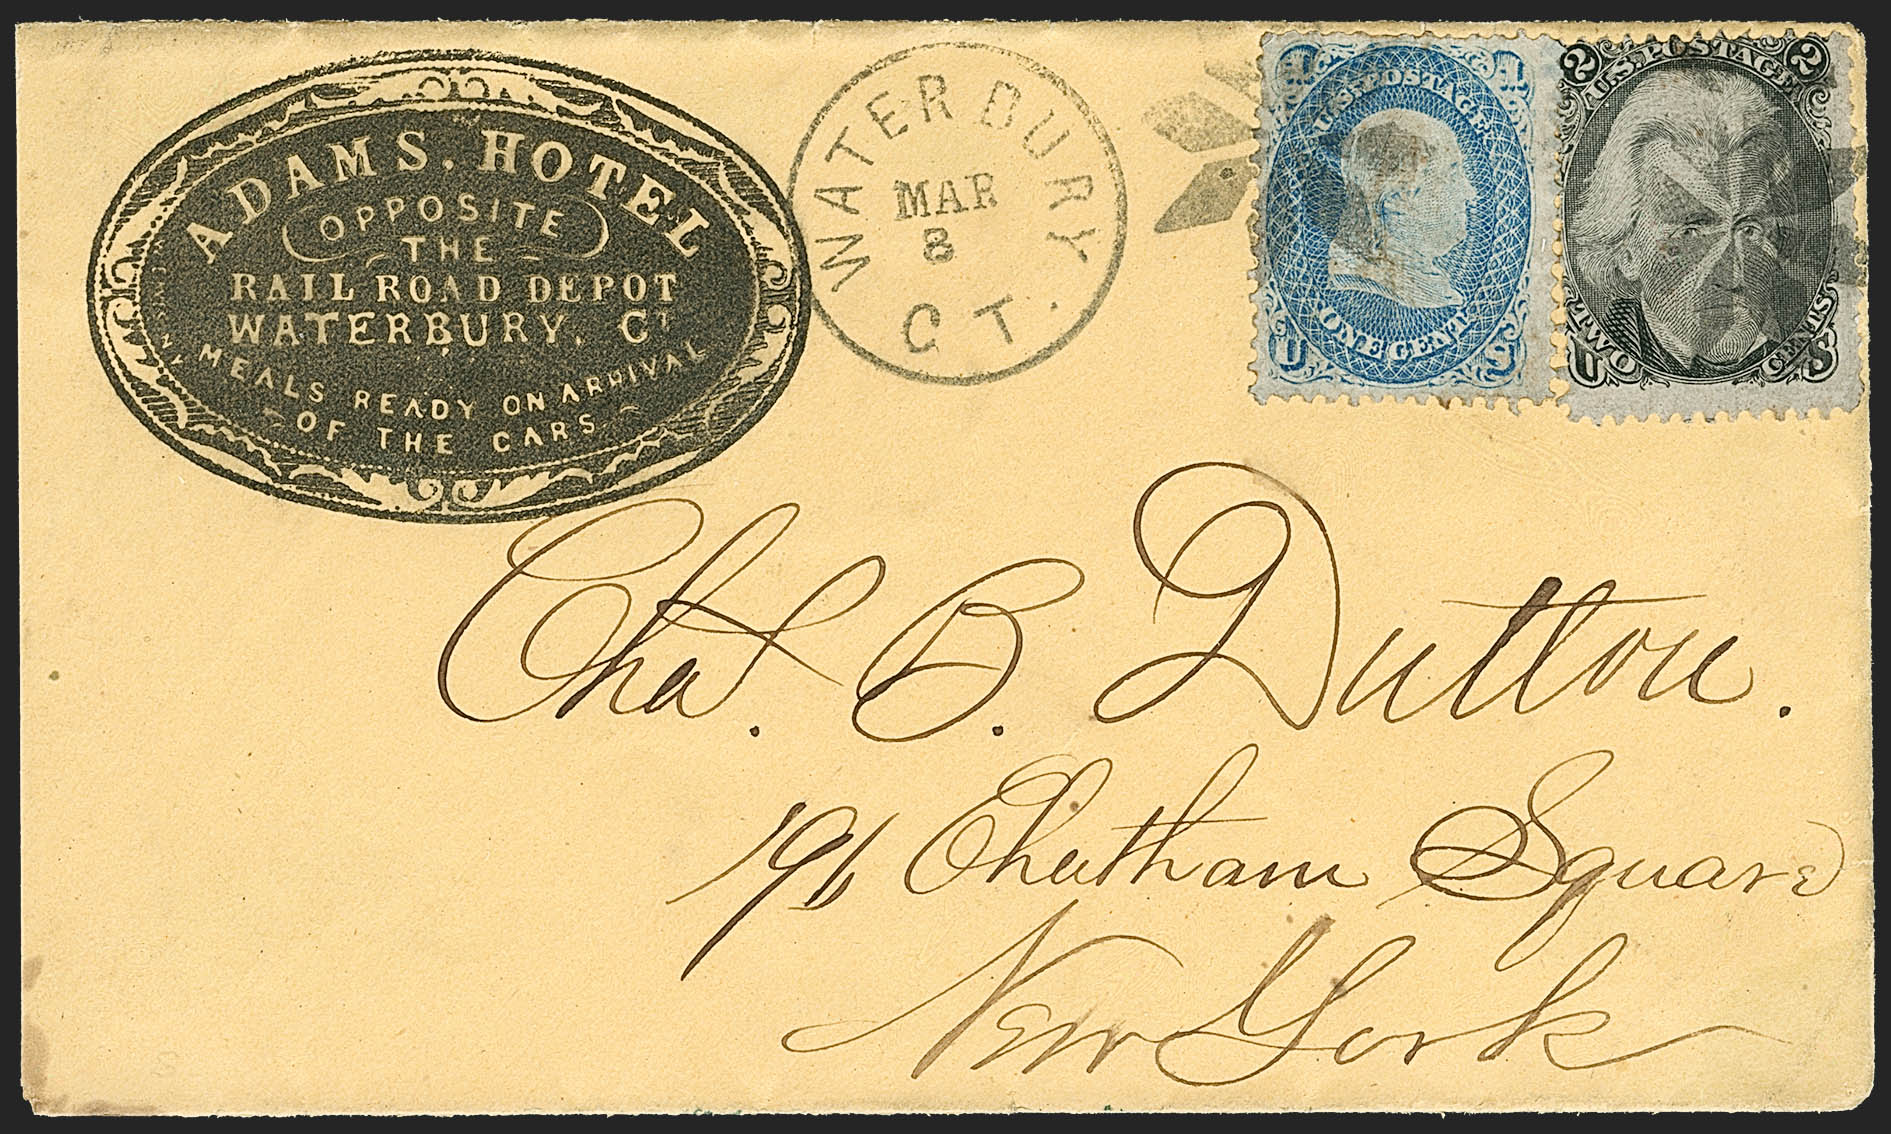 ADAMS. HOTEL
OPPOSITE
THE
RAIL ROAD DEPOT
WATERBURY, CT
MEALS READY ON ARRIVAL
OF THE CARS
WATERBURY
MAR
8
CT.
1 1
U.S. POSTAGE
ONE CENT
U S
2 2
U.S. POSTAGE
TWO CENTS
U S
Chas. B. Dutton.
196 Chatham Square
New York